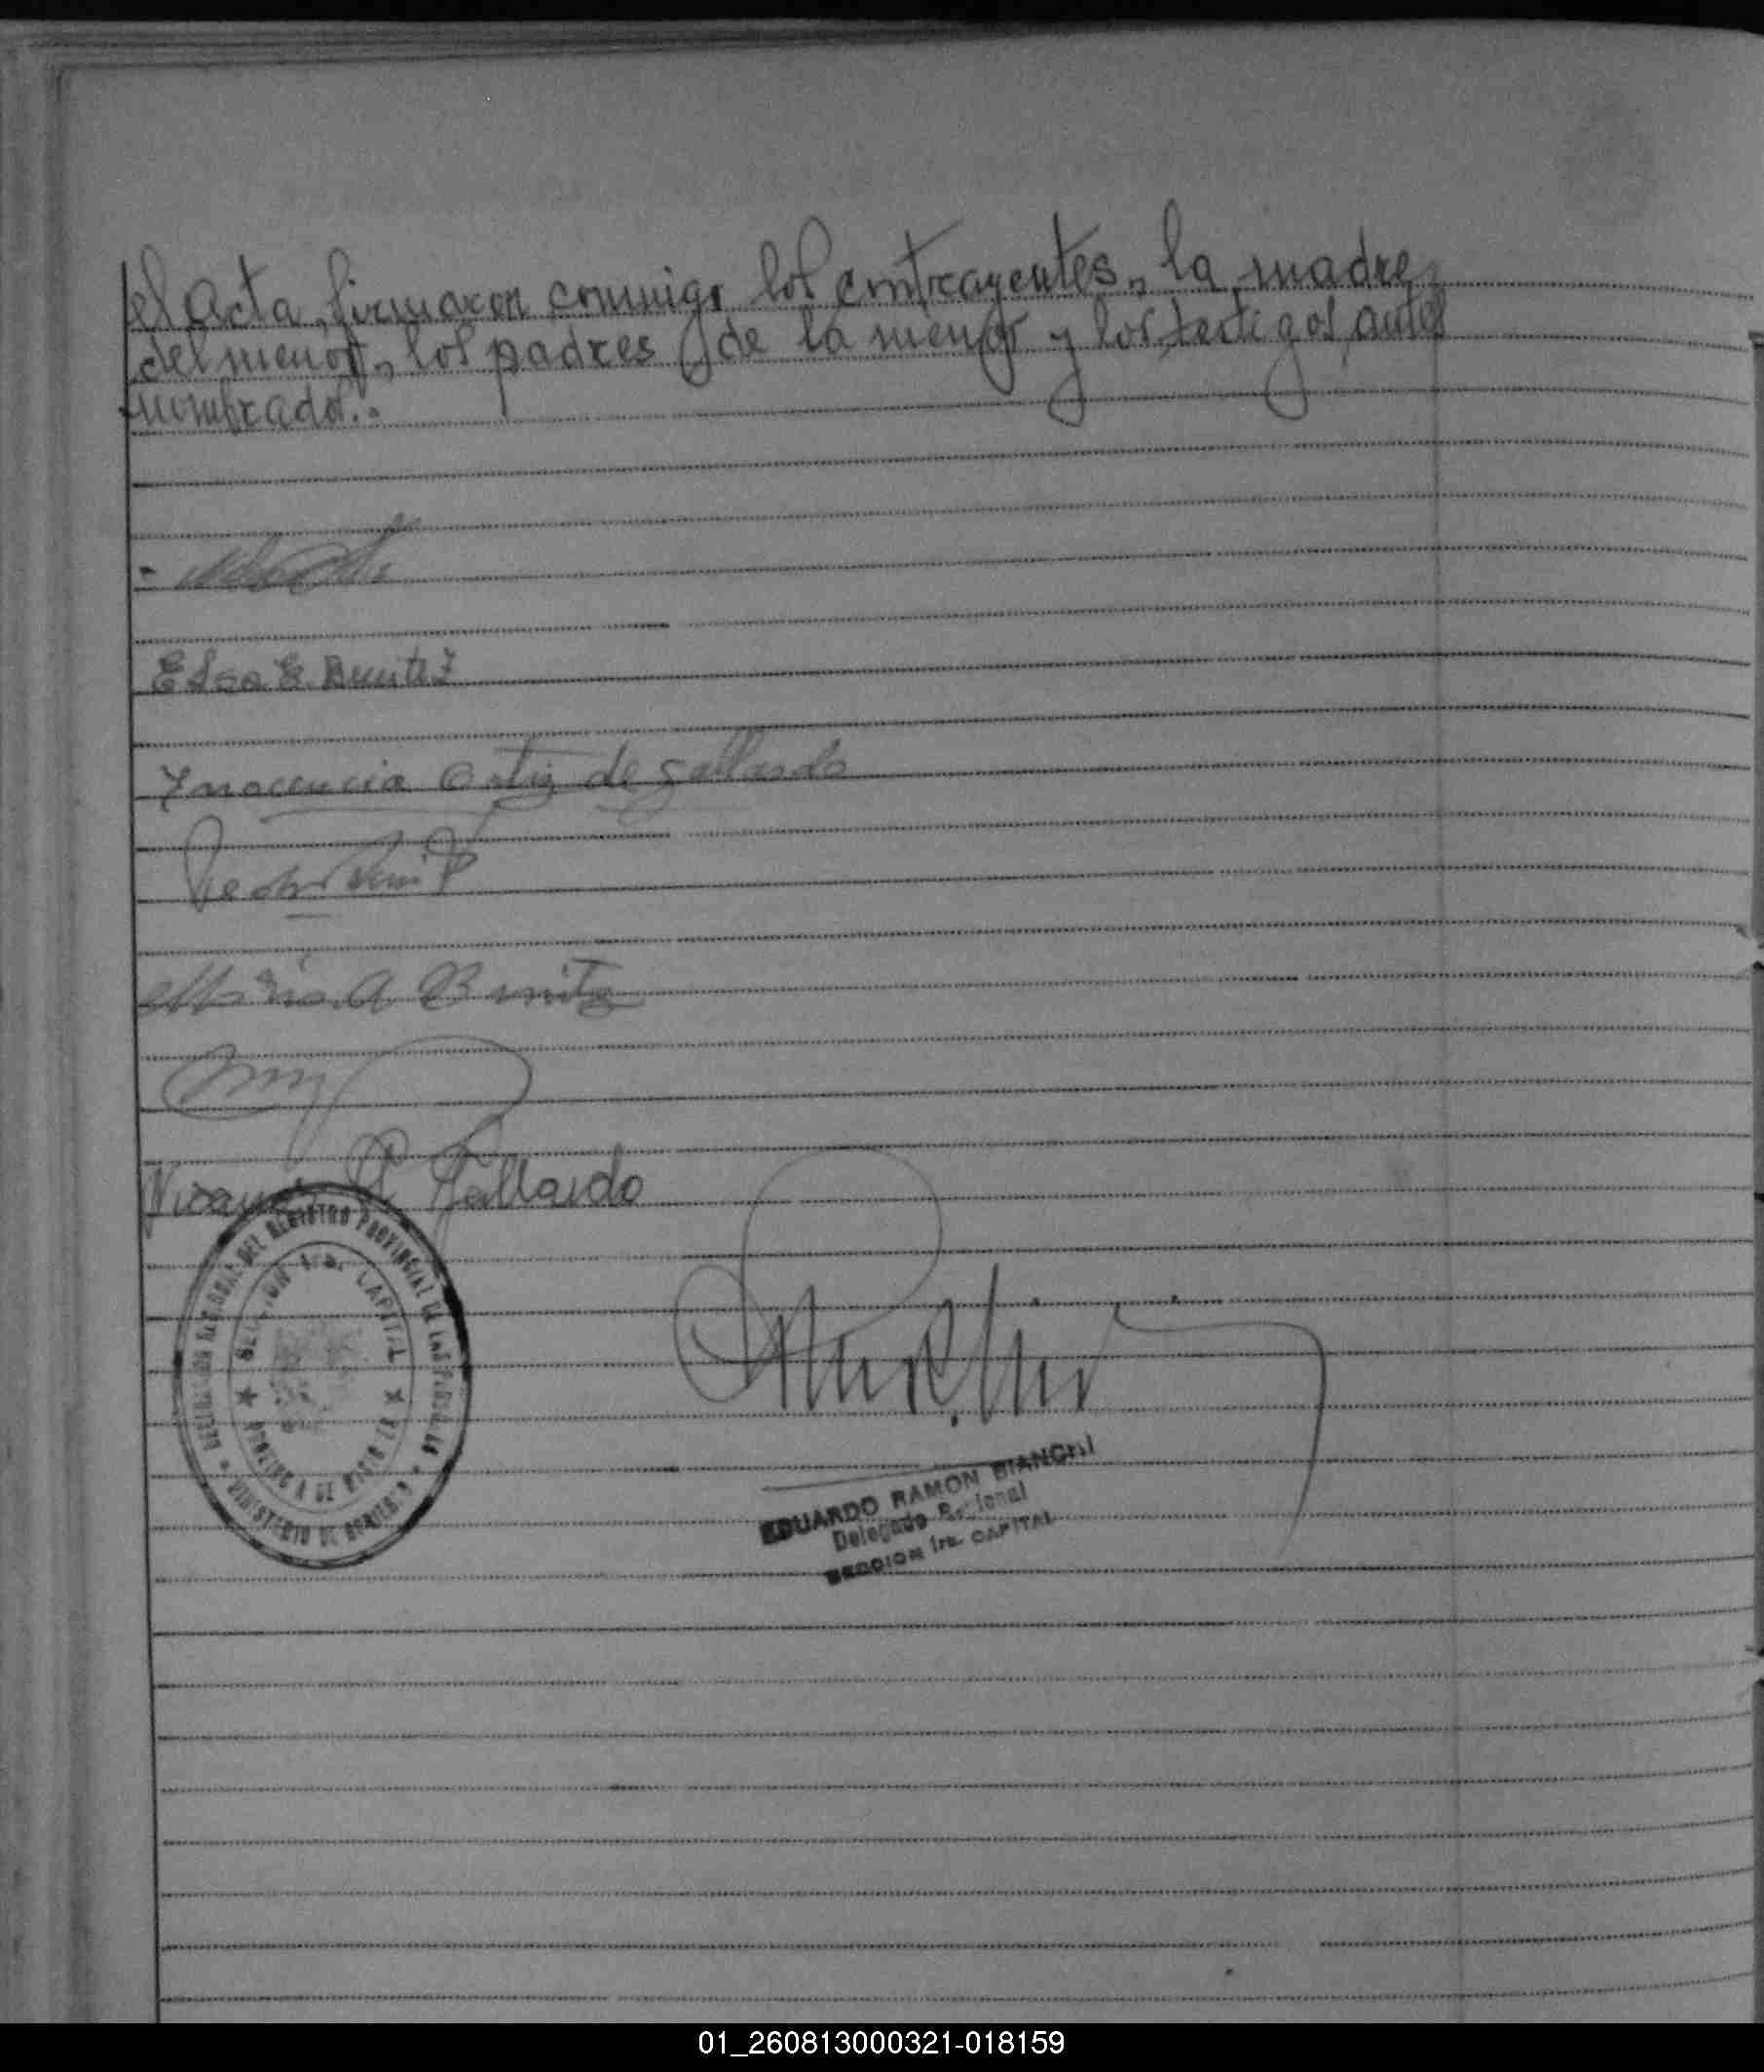 el Acta, firmaron conmigo los contrayentes, la madre
del menor, los padres de la menor y los testigos antes
nombrados.-
Elsa E. Benitez
Ynocencia Ortiz de Gallardo
Pedro Benitez
Maria A Benitez
Gallardo
DEL REGISTRO PROVINCIAL DE LAS PERSONAS
SECCION 1ra. CAPITAL
MINISTERIO DE GOBIERNO
EDUARDO RAMON BIANCHI
Delegado Regional
SECCION 1ra. CAPITAL
01_260813000321-018159